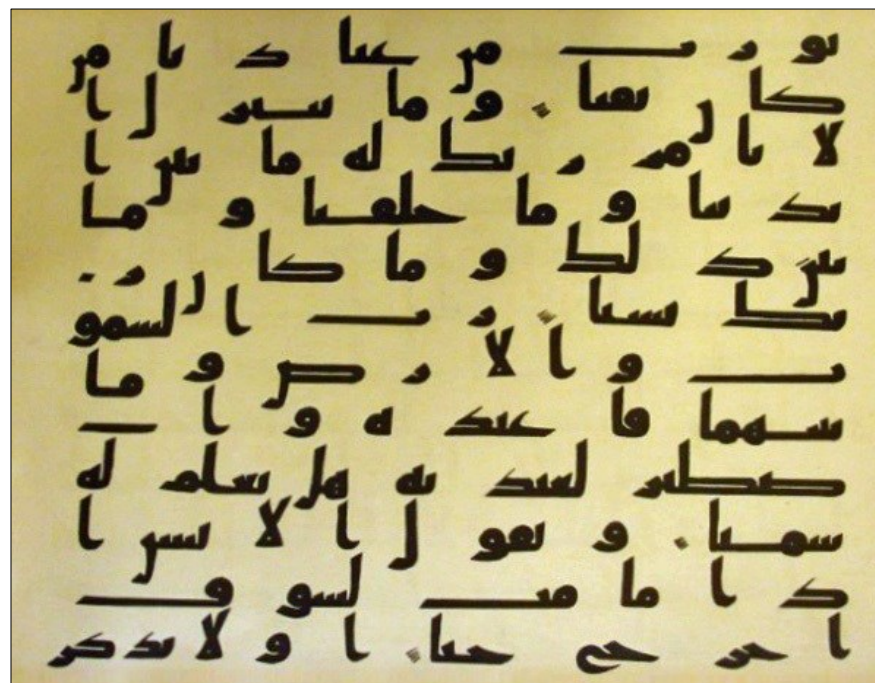 نورث من عبادنا من
كان تقيا وما نتنزل ا
لا بامر ربك له ما بين ا
يدينا وما خلفنا وما
بين ذلك وما كان ر
بك نسيا رب السمو
ت والارض وما
بينهما فاعبده وا
صطبر لعبدته هل تعلم له
سميا ويقول الانسن ا
ذا ما مت لسوف
اخرج حيا اولا يذكر